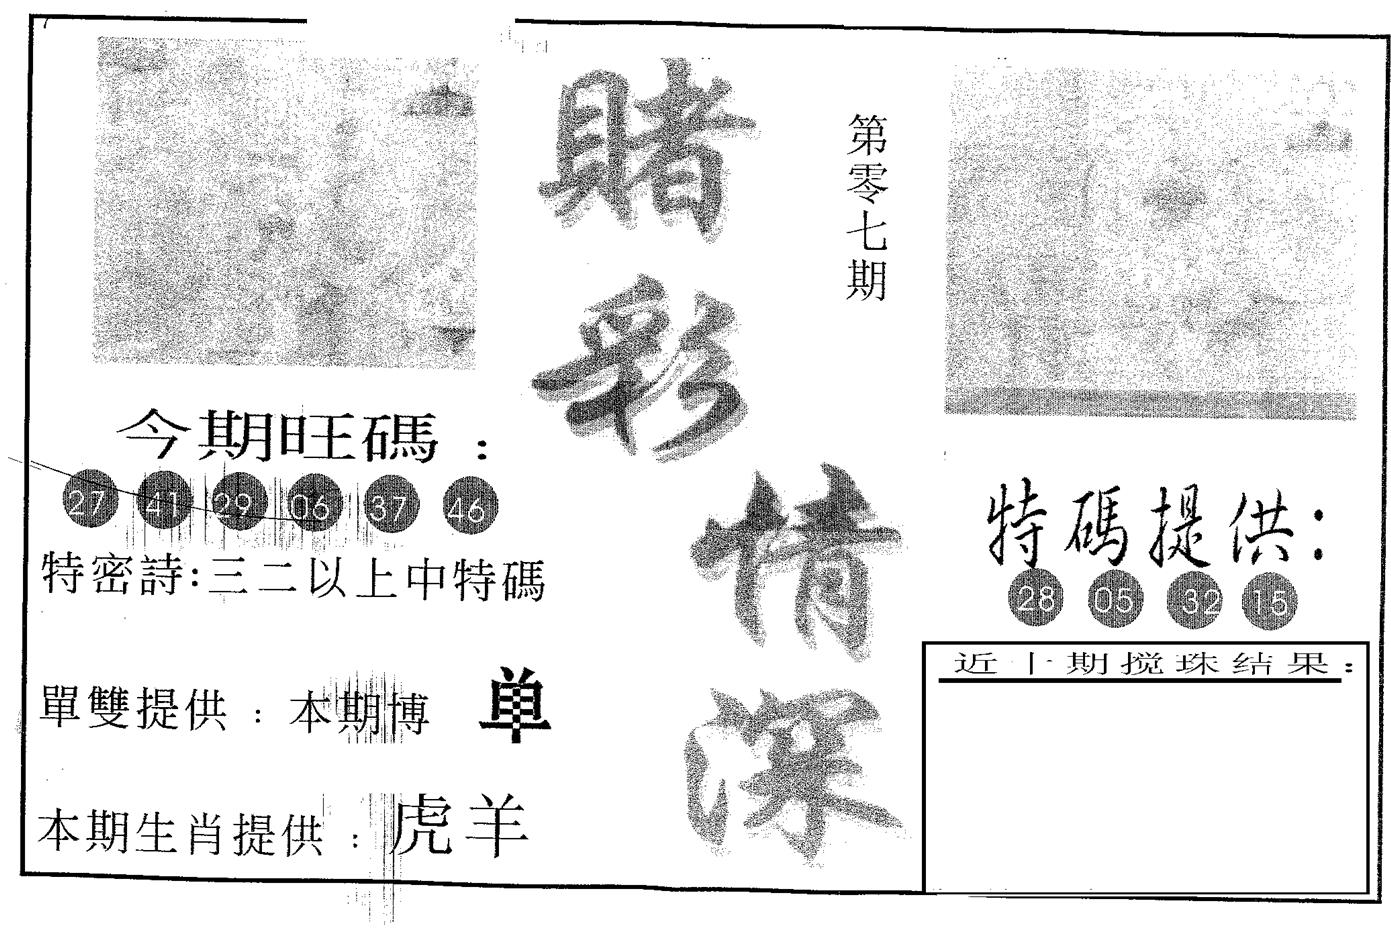 賭彩情深
第零七期
今期旺碼：
27 41 29 06 37 46
特密詩:三二以上中特碼
單雙提供：本期博 单
本期生肖提供：虎羊
特碼提供：
28 05 32 15
近十期搅珠结果：